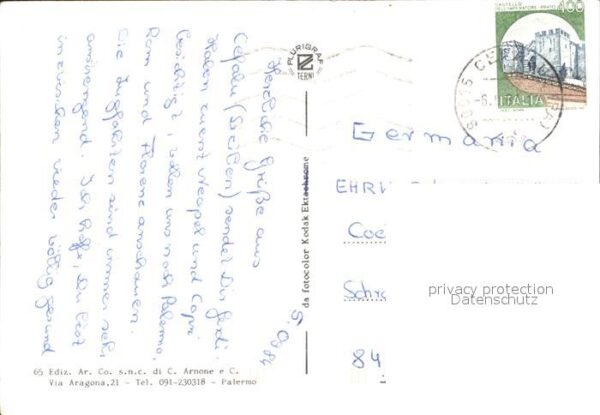 5.9.84
Herzliche Grüße aus
Cefalu (Sizilien) sendet Dir
Haben zuerst Neapel und Capri
besichtigt, wollen uns noch Palermo,
Rom und Florenz anschauen.
Die Zugfahrten sind immer sehr
anstrengend. Ich hoffe, Du bist
inzwischen wieder völlig gesund
65 Ediz. Ar. Co. s.n.c. di C. Arnone e C.
Via Aragona,21 - Tel. 091-230318 - Palermo
PLURIGRAF
TERNI
da fotocolor Kodak Ektachrome
CASTELLO
DELL'IMPERATORE - PRATO
400
ITALIA
90015
Germania
EHRW
Coe
Schr
84
privacy protection
Datenschutz